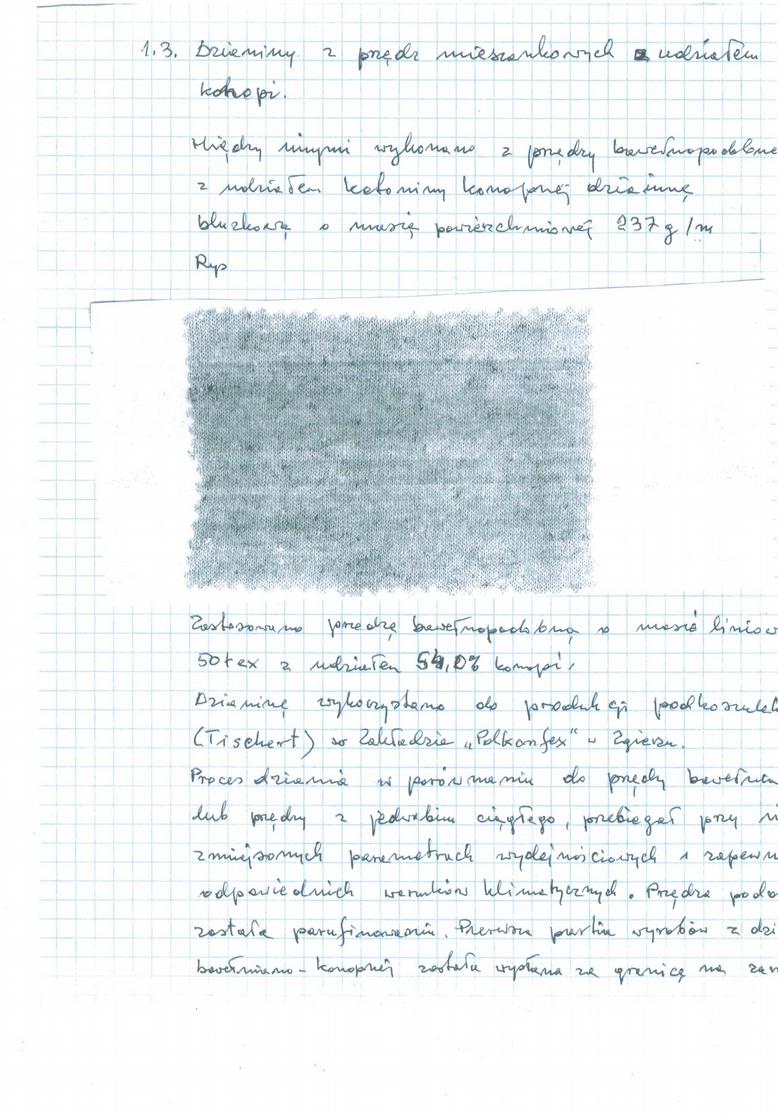 1.3. Dzieniny z przędz mieszankowych z udziałem
konopi.
Między innymi wykonano z przędzy bawełnopodobne
z udziałem kotoniny konopnej dzianinę
bluzkową o masię powierzchniowej 237 g/m
Ryp
Zastosowano przędzę bawełnopodobną o masie liniow
50 tex z udziałem 54,0% konopi,
Dzianinę wykorzystano do produkcji podkoszulek
(Tischert) w Zakładzie „Polkonfex" w Zgierzu.
Proces dziania w porównaniu do przędzy bawełnia
lub przędzy z jedwabiu ciągłego, przebiegał przy
zmniejszonych parametrach wydajnościowych i zapewn
odpowiednich warunków klimatycznych. Przędza podd
została parafinowaniu. Pierwsza partia wyrobów z dzi
bawełniano-konopnej została wysłana za granicę na zam